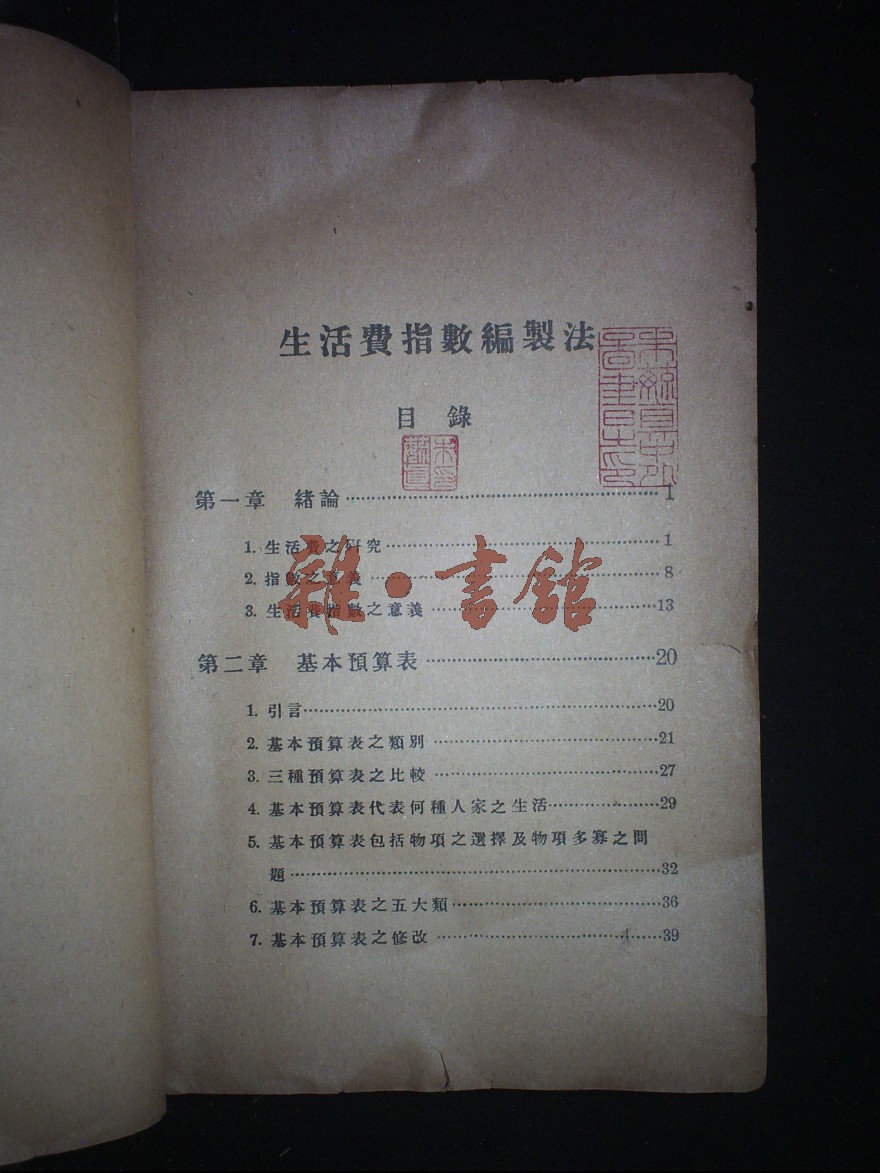 生活費指數編製法
目錄
第一章 緒論…………1
1. 生活費之研究…………1
2. 指數之意義…………8
3. 生活費指數之意義…………13
雜·書館
第二章 基本預算表…………20
1. 引言…………20
2. 基本預算表之類別…………21
3. 三種預算表之比較…………27
4. 基本預算表代表何種人家之生活…………29
5. 基本預算表包括物項之選擇及物項多寡之問
題…………32
6. 基本預算表之五大類…………36
7. 基本預算表之修改…………39